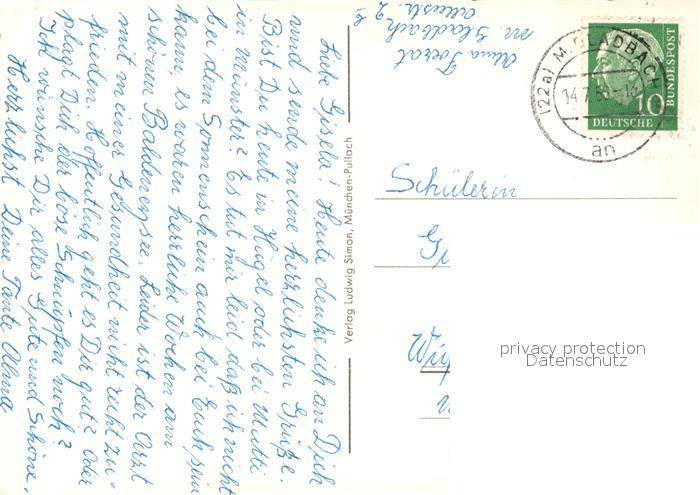 Liebe Gisela! Heute denke ich an Dich
und sende meine herzlichsten Grüße.
Bist Du heute in Hügel oder bei Mutti
in Münster? Es tut mir leid daß ich nicht
bei dem Sonnenschein auch bei Euch sein
kann, es waren herrliche Wochen am
schönen Baldeneysee. Leider ist der Arzt
mit meiner Gesundheit nicht recht zu-
frieden. Hoffentlich geht es Dir gut? Oder
plagt Dich der böse Schnupfen noch?
Ich wünsche Dir alles Gute und Schöne.
Herzlichst Deine Tante Alma
Verlag Ludwig Simon, München-Pullach
Alma
M. Gladbach
(22a) M. GLADBACH
14.7.5
an
10
DEUTSCHE BUNDESPOST
Schülerin
privacy protection
Datenschutz